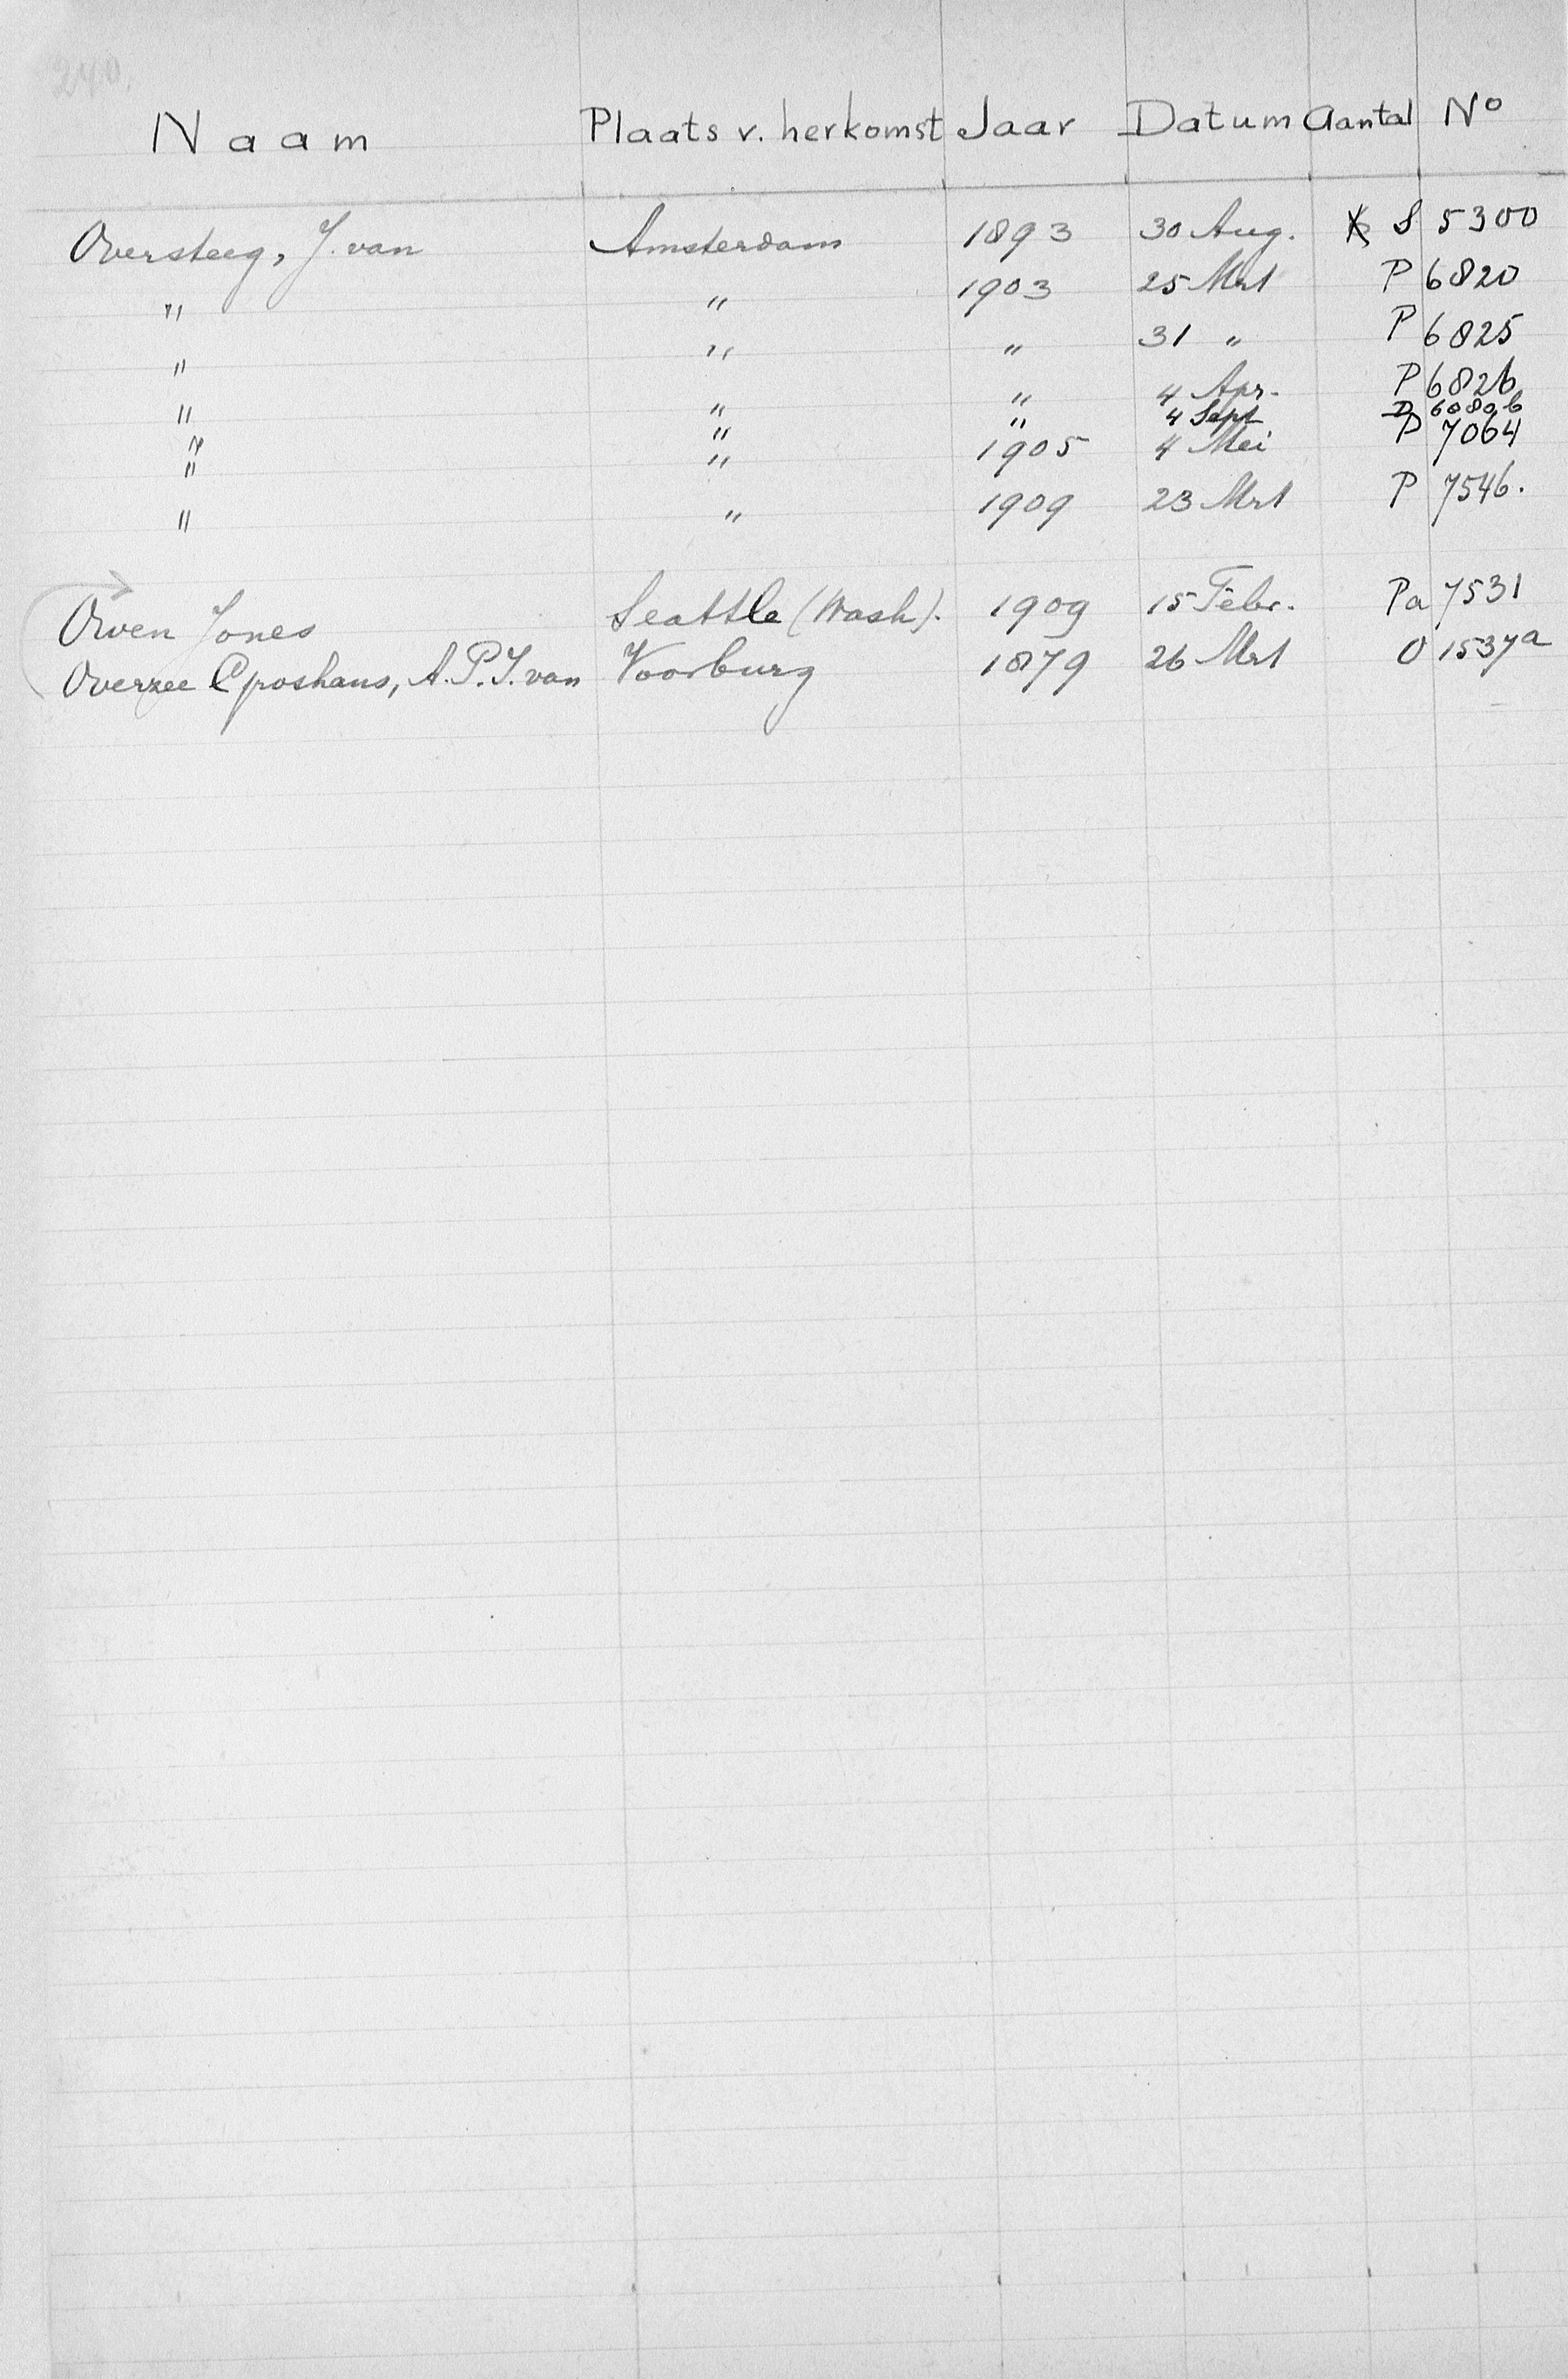 240.
Naam Plaats v. herkomst Jaar Datum Aantal No
Oversteeg, J. van Amsterdam 1893 30 Aug. S 5300
" " 1903 25 Mrt P 6820
" " " 31 " P 6825
" " " 4 Apr. P 6826
" " " 4 Sept 6080b
" " 1905 4 Mei P 7064
" " 1909 23 Mrt P 7546.
Owen Jones Seattle (Wash). 1909 15 Febr. Pa 7531
Overzee Eposhaus, A. P. J. van Voorburg 1879 26 Mrt O 1537a